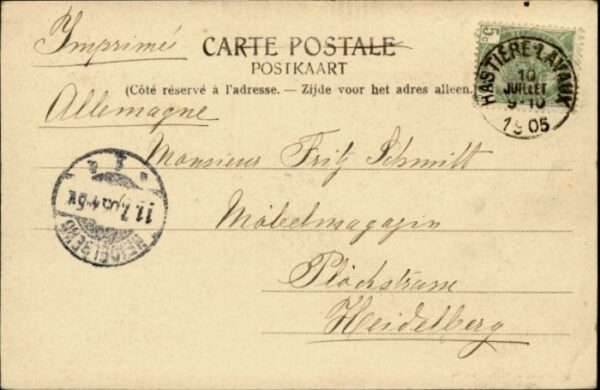 Imprimés
CARTE POSTALE
POSTKAART
(Côté réservé à l'adresse. — Zijde voor het adres alleen.)
Allemagne
5
HASTIÈRE-LAVAUX
10
JUILLET
9-10
1905
Monsieur Fritz Schmitt
Möbelmagazin
Plöckstrasse
Heidelberg
HEIDELBERG
11.7.